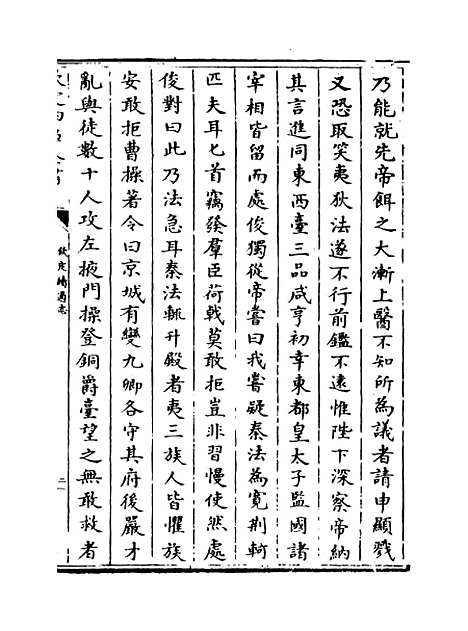 乃能就先帝餌之大漸上醫不知所為議者請申顯戮
又恐取笑夷狄法遂不行前鑑不遠惟陛下深察帝納
其言進同東西臺三品咸亨初幸東都皇太子監國諸
宰相皆留而處俊獨從帝嘗曰我嘗疑秦法為寛荆軻
匹夫耳匕首竊發羣臣荷戟莫敢拒豈非習慢使然處
俊對曰此乃法急耳秦法輒升殿者夷三族人皆懼族
安敢拒曹操著令曰京城有變九卿各守其府後嚴才
亂與徒數十人攻左掖門操登銅爵臺望之無敢救者